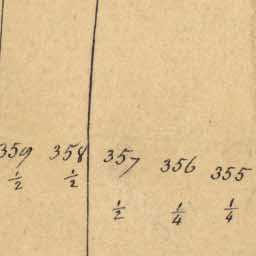 359 358 357 356 355
1/2 1/2 1/2 1/4 1/4